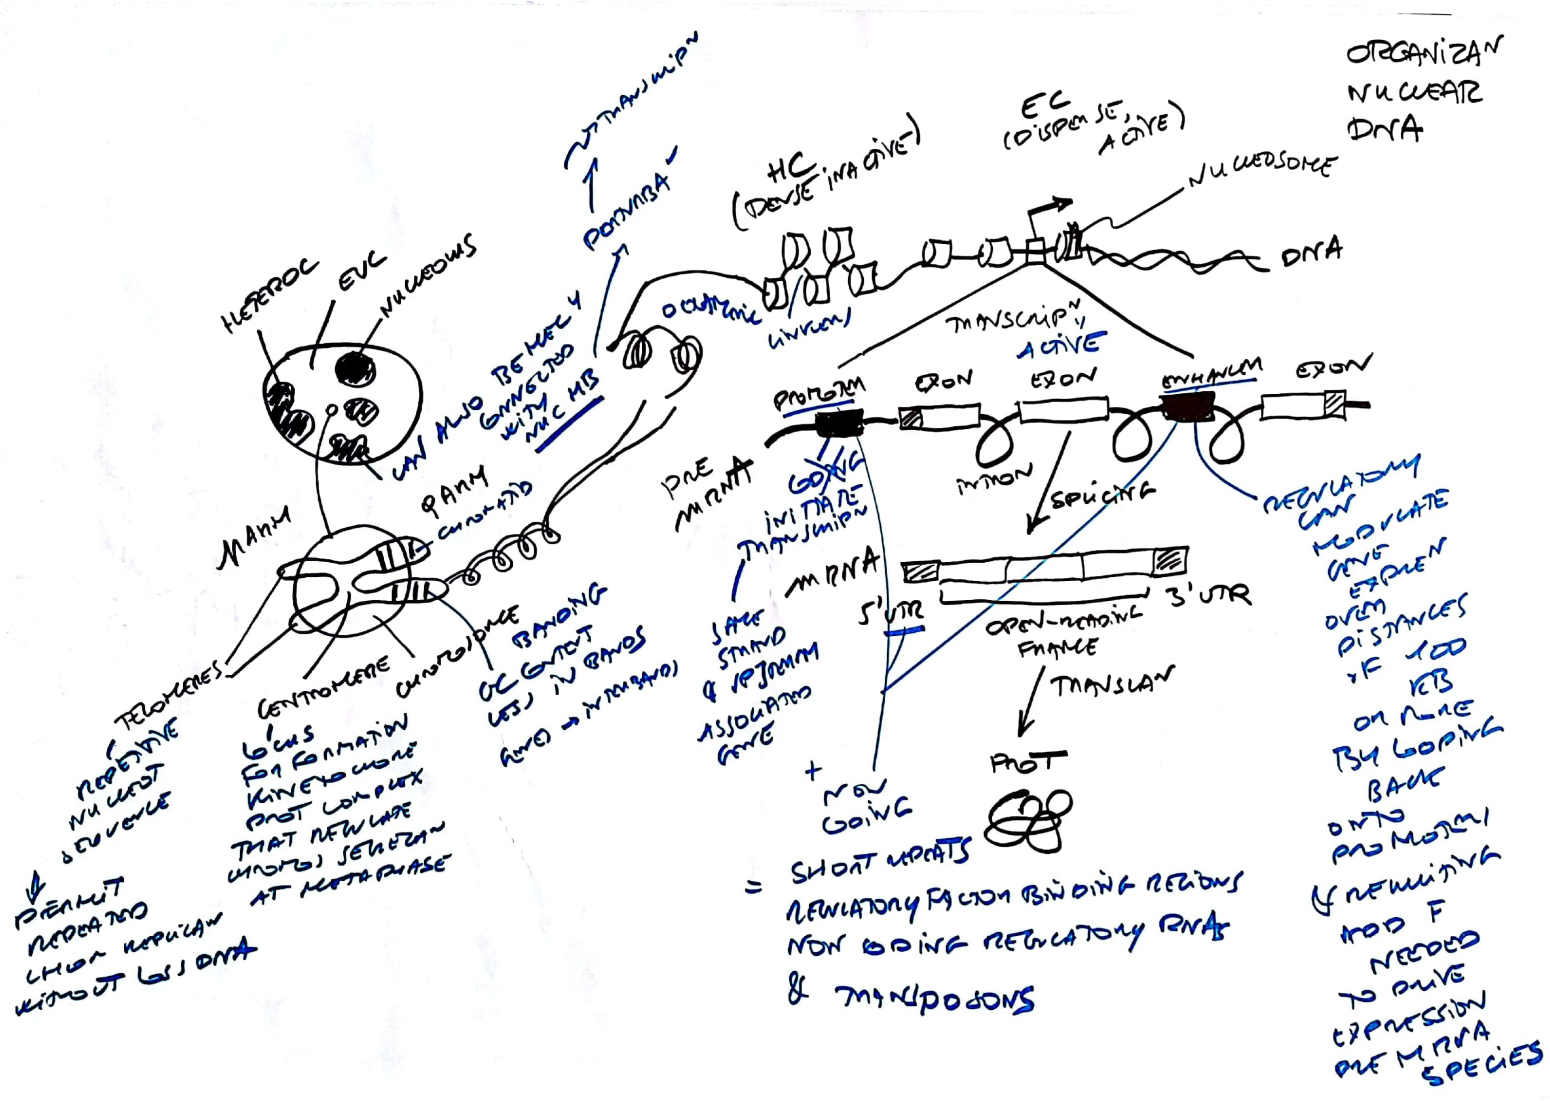 ORGANIZAN
NUCLEAR
DNA
EC
(DISPERSE,
ACTIVE)
HC
(DENSE INACTIVE)
NUCLEOSOME
DNA
LINKERS
TRANSCRIPN
HETEROC
EUC
NUCLEOLUS
CAN ALSO BE
CONNECTED
WITH
NUC MB
TRANSCRIPNLY
ACTIVE
PROMOTER
EXON
EXON
ENHANCER
EXON
PRE
MRNA
INTRON
SPLICING
INITIATE
TRANSCRIPN
SAME
STRAND
& UPSTREAM
ASSOCIATED
GENE
MRNA
5' UTR
OPEN-READING
FRAME
3' UTR
TRANSLAN
PROT
+
NON
CODING
= SHORT REPEATS
REGULATORY FACTOR BINDING REGIONS
NON CODING REGULATORY RNAs
& TRANSPOSONS
REGULATORY
CAN
MODULATE
GENE
EXPREN
OVER
DISTANCES
OF 100
KB
OR MORE
BY LOOPING
BACK
ONTO
PROMOTERS
& RECRUITING
ADD F
NEEDED
TO DRIVE
EXPRESSION
PRE MRNA
SPECIES
P ARM
Q ARM
CHROMATID
CHROMOSOME
BANDING
GC CONTENT
LESS IN BANDS
GENES → INTERBANDS
TELOMERES
REPETITIVE
NUCLEOT
SEQUENCE
PERMIT
REPEATED
CHROM REPLICAN
WITHOUT LOSS DNA
CENTROMERE
LOCUS
FOR FORMATION
KINETOCHORE
PROT COMPLEX
THAT REGULATE
CHROMOS SEGREGAN
AT METAPHASE